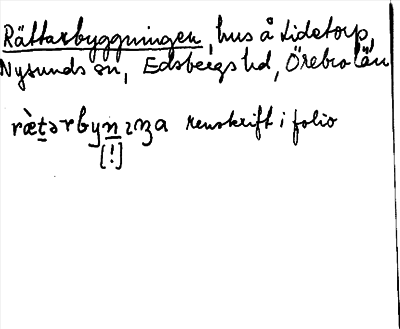 Rättarbyggningen, hus å Lidetorp,
Nysunds sn, Edsbergs hd, Örebro län
ræ̀t̠ərbyn̠ɩŋa renskrift i folio
[!]